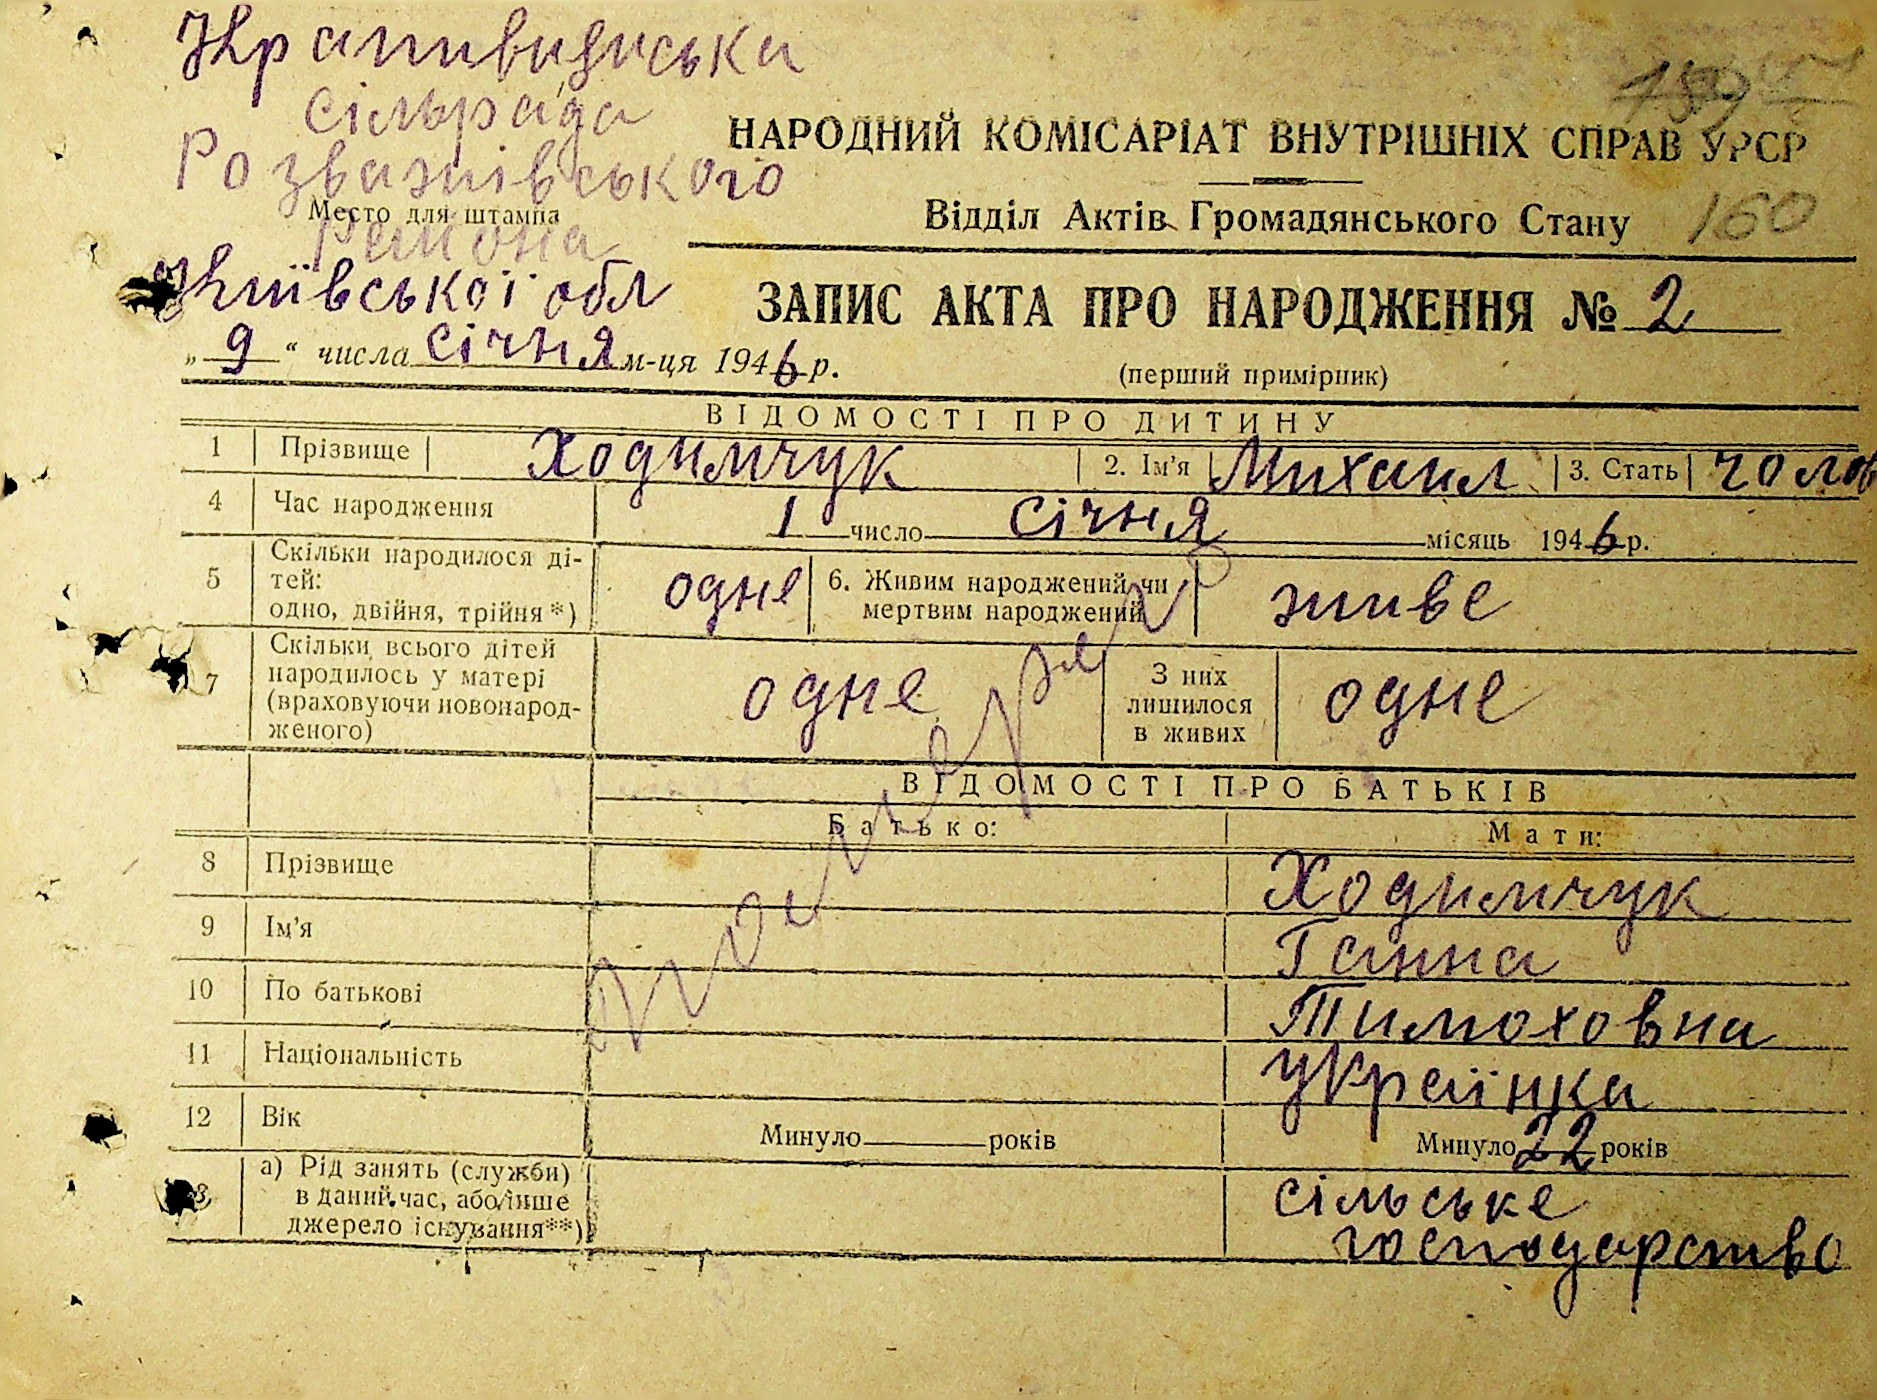 Крапивнянська
сільрада
Розважівського
Место для штампа
Района
Київської обл
НАРОДНИЙ КОМІСАРІАТ ВНУТРІШНІХ СПРАВ УРСР
Відділ Актів Громадянського Стану 160
ЗАПИС АКТА ПРО НАРОДЖЕННЯ № 2
„ 9 “ числа січня м-ця 1946 р.
(перший примірник)
ВІДОМОСТІ ПРО ДИТИНУ
1 Прізвище Ходимчук 2. Ім'я Михаил 3. Стать чолов
4 Час народження 1 число січня місяць 1946 р.
5 Скільки народилося ді-
тей:
одно, двійня, трійня *) одне 6. Живим народжений чи
мертвим народжений живе
7 Скільки всього дітей
народилось у матері
(враховуючи новонарод-
женого) одне З них
лишилося
в живих одне
ВІДОМОСТІ ПРО БАТЬКІВ
Батько: Мати:
8 Прізвище Ходимчук
9 Ім'я Ганна
10 По батькові Тимоховна
11 Національність українка
12 Вік Минуло років Минуло 22 років
а) Рід занять (служби)
в даний час, або інше
джерело існування**) сільське
господарство